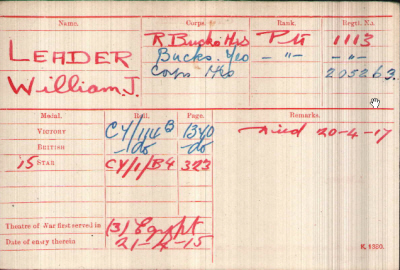 Name. Corps. Rank. Regtl. No.
LEADER R. Bucks Hrs Pte 1113
William. J. Bucks. Yeo - " - - " -
Corps Hrs 205263.
Medal. Roll. Page. Remarks.
VICTORY CY/144B 1340 Died 20-4-17
BRITISH -do- -do-
15 STAR CY/1/B4 323
Theatre of War first served in (3) Egypt
Date of entry therein 21-4-15
K. 1380.